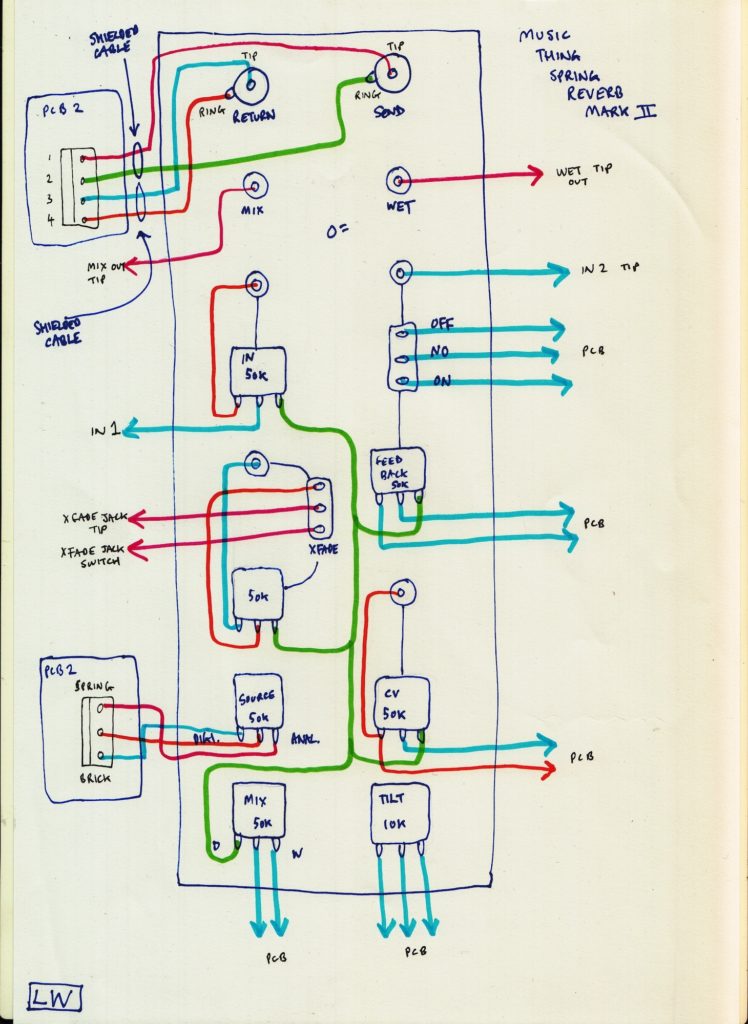 MUSIC
THING
SPRING
REVERB
MARK II
SHIELDED
CABLE
TIP
TIP
RING
RING
RETURN
SEND
PCB 2
1
2
3
4
MIX
WET
WET TIP
OUT
O=
MIX OUT
TIP
IN 2 TIP
SHIELDED
CABLE
OFF
NO
ON
PCB
IN
50K
IN 1
FEED
BACK
50K
XFADE JACK
TIP
XFADE JACK
SWITCH
XFADE
PCB
50K
PCB2
SPRING
BRICK
SOURCE
50K
DIGI.
ANAL.
CV
50K
PCB
MIX
50K
TILT
10K
D
W
PCB
PCB
LW